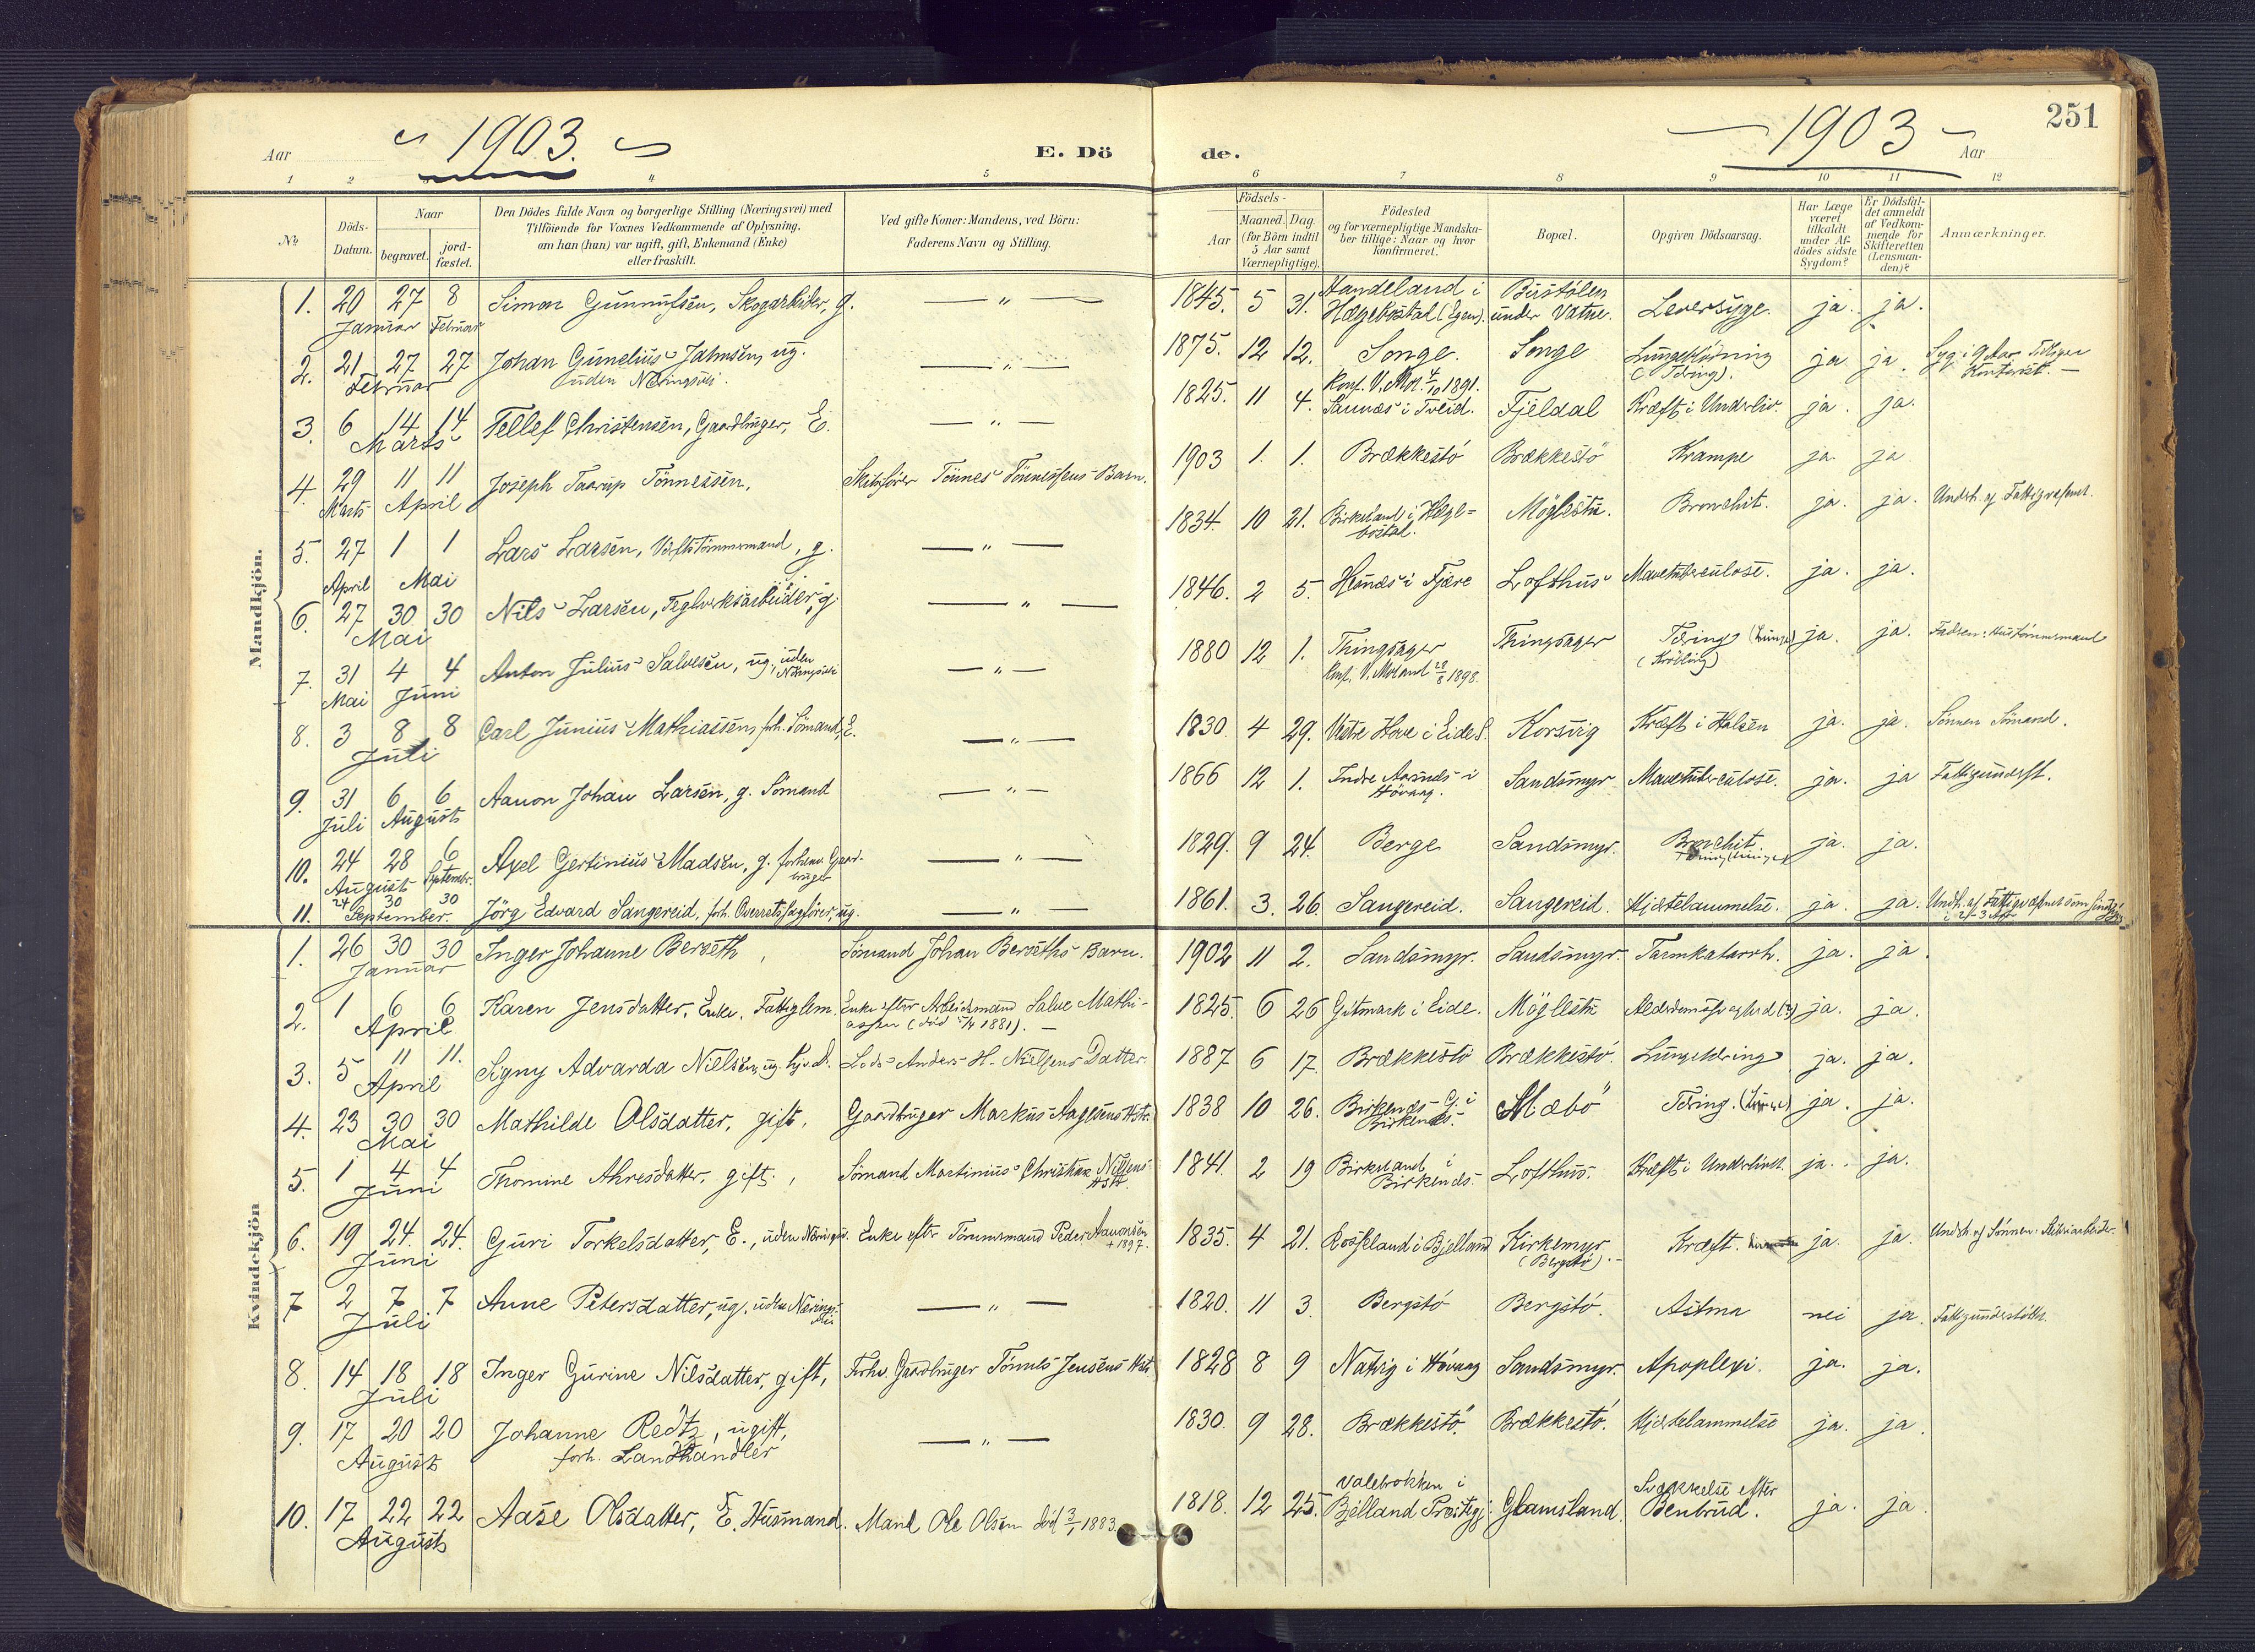 251
Aar 1903. E. Dö de. 1903 Aar
1 2 3 4 5 6 7 8 9 10 11 12
№ Döds-Datum. Naar begravet. jord-fæstet.
Den Dödes fulde Navn og borgerlige Stilling (Næringsvei) med
Tilföiende for Voxnes Vedkommende af Oplysning,
om han (hun) var ugift, gift, Enkemand (Enke)
eller fraskilt.
Ved gifte Koner: Mandens, ved Börn:
Faderens Navn og Stilling.
Födsels-
Aar Maaned. Dag.
(for Börn indtil
5 Aar samt
Værnepligtige).
Födested
og for værnepligtige Mandska-
ber tillige: Naar og hvor
konfirmeret.
Bopæl.
Opgiven Dödsaarsag.
Har Læge
været
tilkaldt
under Af-
dödes sidste
Sygdom?
Er Dödsfal-
det anmeldt
af Vedkom-
mende for
Skifteretten
(Lensman-
den)?
Anmærkninger.
Mandkjön.
1. 20 27 8 Januar Februar Simon Gunnufsen, Skogarbeider, g. — " — 1845. 5 31. Haandeland i Hægebostad (Egen). Bustölen under Vatne. Leversyge. ja. ja.
2. 21 27 27 Februar Johan Gunelius Jahnsen, ug. uden Næringsvei. — " — 1875. 12 12. Songe. Konf. V. Mol. 4/10 1891. Songe Lungeblödning (Tæring). ja ja. Syg i 9 Aar. Tidligere Kontorist. —
3. 6 14 14 Marts Tellef Christensen, Gaardbruger, E. — " — 1825. 11 4. i Tveid. Fjeldal Kræft i Underliv. ja. ja.
4. 29 11 11 Marts April Joseph Taarup Tönnessen, Skibsförer Tönnes Tönnessens Barn. 1903 1. 1. Brækkestö Brækkestö Krampe ja. ja
5. 27 1 1 April Mai Lars Larsen, Værftstömmermand, g. — " — 1834. 10 21. Birkeland i Hæge-bostad. Möglestu. Bronchit. ja. ja. Underst. af Fattigvæsenet.
6. 27 30 30 Mai Nils Larsen, Teglverksarbeider, g. — " — 1846. 2 5. i Fjære Lofthus Mavetuberculose. ja. ja.
7. 31 4 4 Mai Juni Anton Julius Salvesen, ug., uden Næringsvei — " — 1880 12 1. Thingsager Konf. V. Moland 28/8 1898. Thingsager Tæring (Lunge) ja. ja. Faderen: Hustömmermand
8. 3 8 8 Juli Carl Junius Mathiassen, forh. Sömand, E. — " — 1830. 4 29. Vestre Hove i Eide S. Korsvig Kræft i Halsen ja. ja. Sönnen Sömand.
9. 31 6 6 Juli August Aanon Johan Larsen, g. Sömand — " — 1866 12 1. Indre Aarsnes i Hövaag. Sandsmyr Mavetuberculose. ja. ja Fattigunderst.
10. 24 28 6 August September. Axel Gertinius Madsen, g. forhenv. Gaard-bruger — " — 1829. 9 24. Berge Sandsmyr. Bronchit. ja. ja.
11. 24 30 30 September. Jörg Edvard Sangereid, forh. Overretssagförer, ug. — " — 1861. 3. 26. Sangereid. Sangereid. Hjertelammelse. ja. ja. Underst. af Fattigvæsenet som sindssyg i 2-3 Aar
Kvindekjön
1. 26 30 30 Januar Inger Johanne Berseth, Sömand Johan Berseths Barn. 1902 11 2. Sandsmyr. Sandsmyr. Tarmkatarrh. ja. ja.
2. 1 6 6 April Karen Jensdatter. Enke. Fattiglem. Enke efter Arbeidsmand Salve Mathi-assen (död 5/4 1881). — 1825. 6 26 Gitmark i Eide. Möglestu ja. ja.
3. 5 11 11. April Signy Advarda Nielsen, ug. hjv. D. Lods Anders H. Nielsens Datter. 1887 6 17. Brækkestö Brækkestö. Lungetæring ja. ja.
4. 23 30 30 Mai Mathilde Olsdatter, gift, Gaardbruger Markus Aagesens Hstr. 1838 10 26. Birkenes Gj. i Birkenes. Mæbö Tæring. (Lunge) ja. ja.
5. 1 4 4 Juni Thomine Ahresdatter, gift, Sömand Martinius Christian Nilsens Hstr. 1841. 2 19 Birkeland i Birkenes. Lofthus. Kræft i Underlivet. ja. ja.
6. 19 24. 24. Juni Guri Torkelsdatter, E., uden Næringsv. Enke efter Tömmermand Peder Aanonsen + 1897. 1835. 4 21. Rosseland i Bjelland Kirkemyr (Bergstö). Kræft. ja. ja. Underst. af Sönnen
7 2 7 7 Juli Anne Petersdatter, ug. uden Nærings-vei — " — 1820. 11 3. Bergstö Bergstö. Astma nei ja. Fattigunderstöttet.
8. 14 18 18 Juli Inger Gurine Nilsdatter, gift, Forhv. Gaardbruger Tönnes Jensens Hstr. 1828 8 9 Natvig i Hövaag Sandsmyr. Apoplexi. ja. ja.
9. 17 20 20 August Johanne Redtz, ugift, forh. Landhandler — " — 1830. 9 28. Brækkestö. Brækkestö. Hjertelammelse ja. ja.
10. 17 22 22 August Aase Olsdatter, E. Husmand. Mand Ole Olsen död 3/1 1883. 1818. 12 25. Valebrokken i Bjelland Præstegj. Glamsland. Svækkelse efter Benbrud. ja. ja